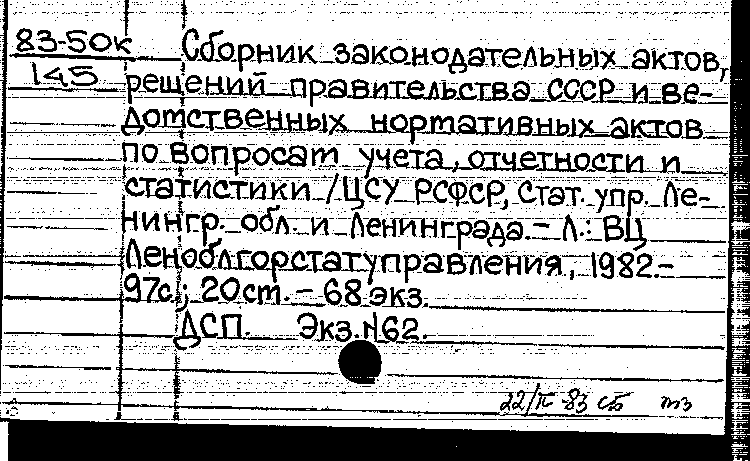 83-50к Сборник законодательных актов,
145 решений правительства СССР и ве-
домственных нормативных актов
по вопросам учета, отчетности и
статистики /ЦСУ РСФСР, Стат. упр. Ле-
нингр. обл. и Ленинграда.- Л.: ВЦ
Леноблгорстатуправления, 1982.-
97с.; 20 см. - 68 экз.
ДСП. Экз. N62.
22/IV-83 сб